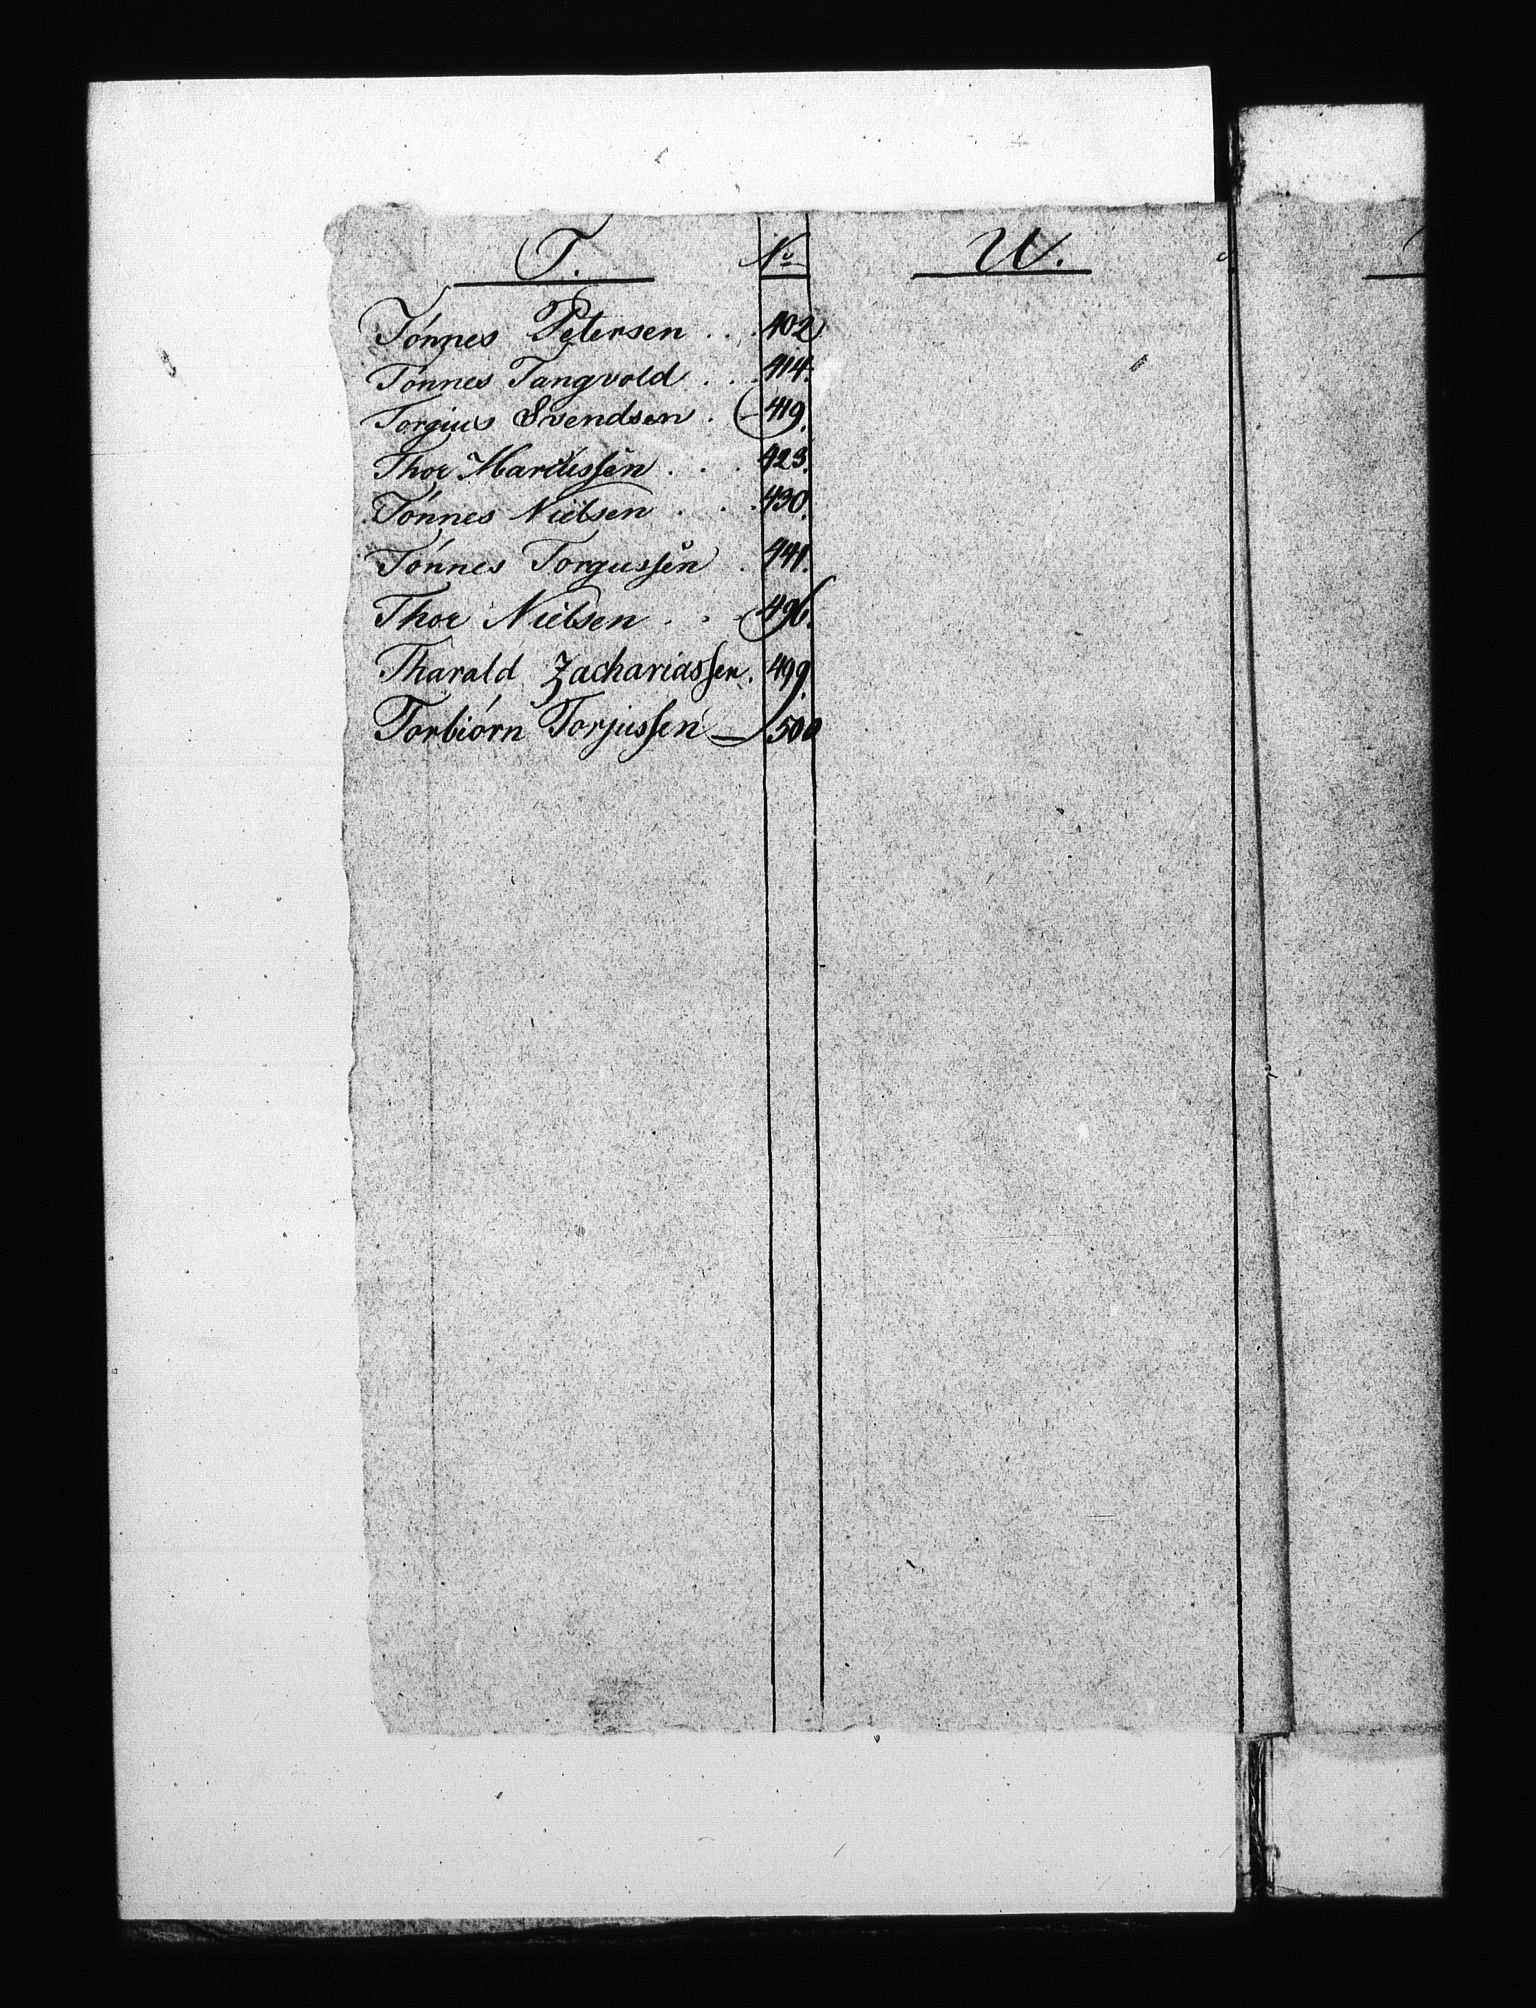 T. No W.
Tónnes Petersen . . . 402
Tonnes Tangvold . . . 414.
Torgius Svendsen . 419.
Thor Mariussen . . . 423.
Tónnes Nielsen . . . 430.
Tónnes Torgussen . 441.
Thor Nielsen . . . 496.
Tharald Zachariassen. 499.
Torbiórn Torjussen 500